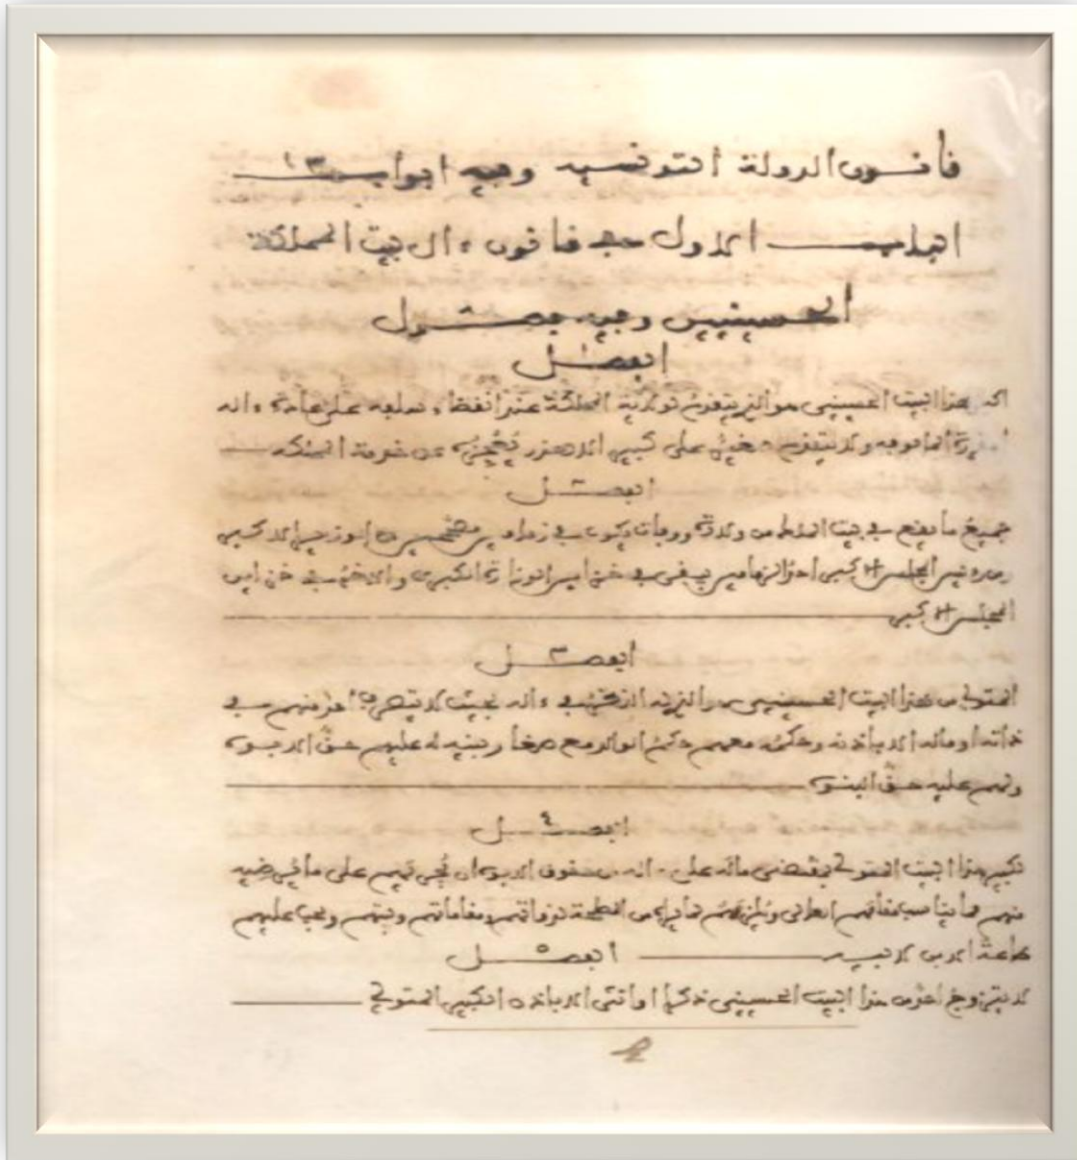 قانون الدولة التونسية وفيه ابواب ١٣
الباب الاول في قانون ءال بيت المملكة
الحسينيين وفيه فصول
الفصل ١
اكبر هذا البيت الحسيني هو الذي يتقدم لولاية المملكة عند انقضاء سلفه على عادة ءاله
المالوفه ولا يتقدم صغير على كبير الا لعذر يعجزه عن خدمة المملكه
الفصل ٢
جميع ما يقع في بيت الملك من ولادة ووفات يكون في زمامين من الوزير الاكبر
ومن رئيس المجلس الاكبر احد الزمامين يبقى في خزاين الوزارة الكبرى والاخر في خزاين
المجلس الاكبر
الفصل ٣
المتولي من هذا البيت الحسيني هو الذي له النظر في ءاله بحيث لا يتصرف احد منهم في
ذاته او ماله الا باذنه وحكمه معهم حكم الوالد مع صغار بنيه له عليهم حق الابوة
ولهم عليه حق البنوة
الفصل ٤
لكبير هذا البيت المتولي بمقتضى ماله على ءاله من حقوق الابوة ان يجري لهم على ما يرضيه
منهم ما يناسب مقامهم العالي ويلزمهم ما يراه من المصلحة لذواتهم ومقاماتهم وبيتهم ويجب عليهم
طاعة الابن لابيه
الفصل ٥
لا يتزوج احد من هذا البيت الحسيني ذكرا او انثى الا باذن الكبير المتولي